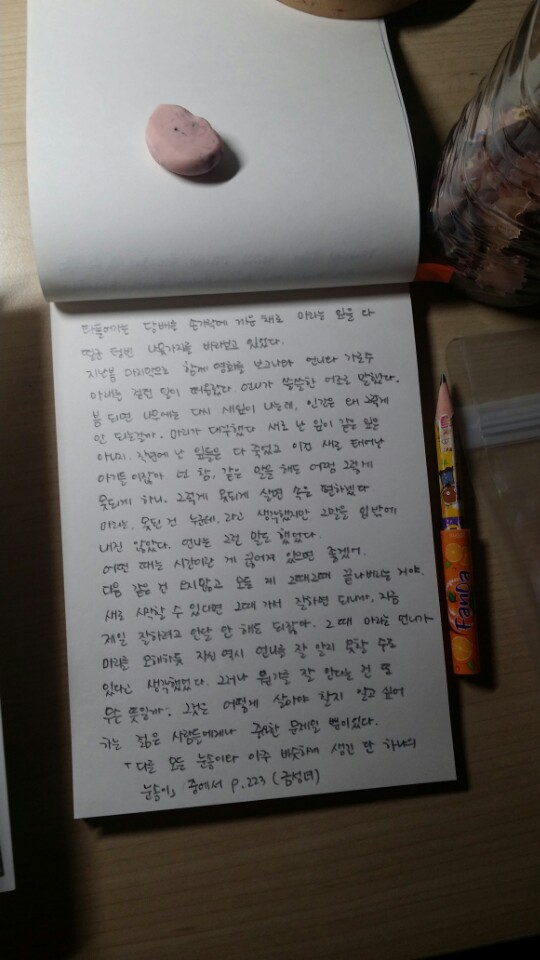 타들어가는 담배를 손가락에 끼운 채로 마리는 잎을 다
떨군 텅빈 나뭇가지를 바라보고 있었다.
지난봄 마리안으로 함께 영화를 보고나와 언니와 가로수
아래를 걸던 일이 떠올랐다 언니가 쓸쓸한 어조로 말했다.
봄 되면 나무에는 다시 새잎이 나는데, 인간은 왜 그렇게
안 되는걸까. 마리가 대꾸했다 새로 난 잎이 같은 잎은
아니지. 작년에 난 잎들은 다 죽었고 이건 새로 태어난
아기들이잖아 넌 참, 같은 말을 해도 어쩜 그렇게
못되게 하니, 그렇게 못되게 살면 속은 편하겠다
마리는, 못된 건 누군데, 라고 생각했지만 그말을 입밖에
내진 않았다. 언니는 그런 말도 했었다.
어떤 때는 시간이란 게 끊어져 있으면 좋겠어.
다음 같은 건 오지않고 모든 게 그때그때 끝나버리는 거야.
새로 시작할 수 있다면 그때 가서 잘하면 되니까, 지금
제일 잘하려고 안달 안 해도 되잖아. 그 때 마리는 언니가
마리를 오해하듯 자신 역시 언니를 잘 알지 못할 수도
있다고 생각했었다. 그러나 뭔가를 잘 안다는 건 또
무슨 뜻일까. 그것은 어떻게 살아야 할지 알고 싶어
하는 젊은 사람들에게나 중요한 문제일 뿐이었다.
「다른 모든 눈송이와 아주 비슷하게 생긴 단 하나의
눈송이」 중에서 p.223 (금성녀)
FanDa